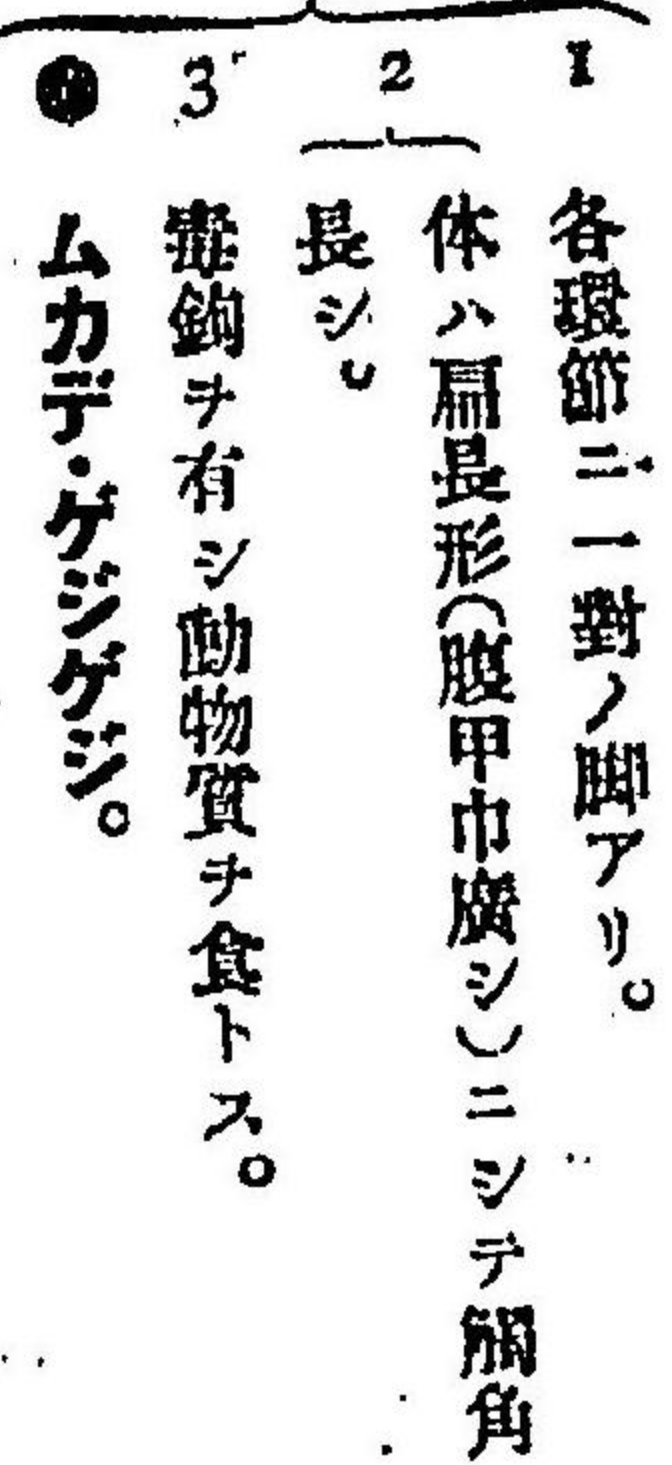 1 各環節ニ一對ノ脚アリ。
2 体ハ扁長形(腹甲巾廣シ)ニシテ觸角
長シ。
3 毒鉤ヲ有シ動物質ヲ食トス。
● ムカデ・ゲジゲジ。